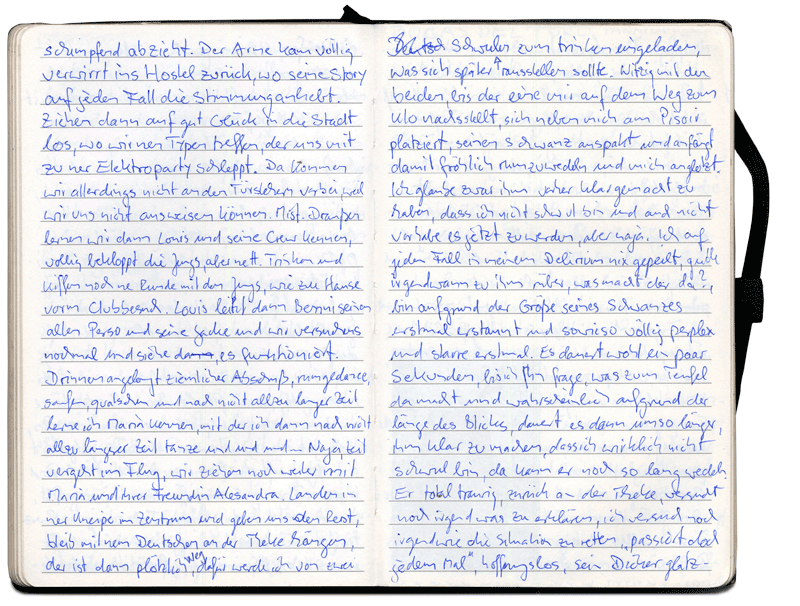 schimpfend abzieht. Der Arme kam völlig
verwirrt ins Hostel zurück, wo seine Story
auf jeden Fall die Stimmung anhebt.
Ziehen dann auf gut Glück in die Stadt
los, wo wir nen Typen treffen, der uns mit
zu ner Elektroparty schleppt. Da kommen
wir allerdings nicht an den Türstehern vorbei, weil
wir uns nicht ausweisen können. Mist. Draußen
lernen wir dann Louis und seine Crew kennen,
völlig bekloppt die Jungs, aber nett. Trinken und
kiffen noch ne Runde mit den Jungs, wie zu Hause
vorm Clubbesuch. Louis leiht dann Benni seinen
alten Perso und seine Jacke und wir versuchens
nochmal und siehe da, es funktioniert.
Drinnen angelangt ziemlicher Abschuß, rumgedance,
saufen, quatschen und nach nicht allzu langer Zeit
lerne ich Maria kennen, mit der ich dann nach nicht
allzu längerer Zeit tanze und und und... Naja Zeit
vergeht im Flug, wir ziehen noch weiter mit
Maria und ihrer Freundin Alesandra. Landen in
ner Kneipe im Zentrum und geben uns den Rest,
bleib mit nem Deutschen an der Theke hängen,
der ist dann plötzlich weg, dafür werde ich von zwei
Schwulen zum trinken eingeladen,
was sich später rausstellen sollte. Witzig mit den
beiden, bis der eine mir auf dem Weg zum
Klo nachstellt, sich neben mich am Pisoir
platziert, seinen Schwanz anspakt und anfängt
damit fröhlich rumzuwedeln und mich anglotzt.
Ich glaube zwar ihm vorher klargemacht zu
haben, dass ich nicht schwul bin und auch nicht
vorhabe es jetzt zu werden, aber naja. Ich auf
jeden Fall in meinem Delirium nix gepeilt,
irgendwann zu ihm rüber, was macht der da?,
bin aufgrund der Größe seines Schwanzes
erstmal erstaunt und sowieso völlig perplex
und starre erstmal. Es dauert wohl ein paar
Sekunden, bis ich ihn frage, was zum Teufel
da macht und wahrscheinlich aufgrund der
länge des Blickes, dauert es dann umso länger,
ihm klar zu machen, dass ich wirklich nicht
schwul bin, da kann er noch so lang wedeln.
Er total traurig, zurück an der Theke, versucht
noch irgendwas zu erklären, ich versuch noch
irgendwie die Situation zu retten „passiert doch
jedem mal“, hoffnungslos, sein Dicker glatz-